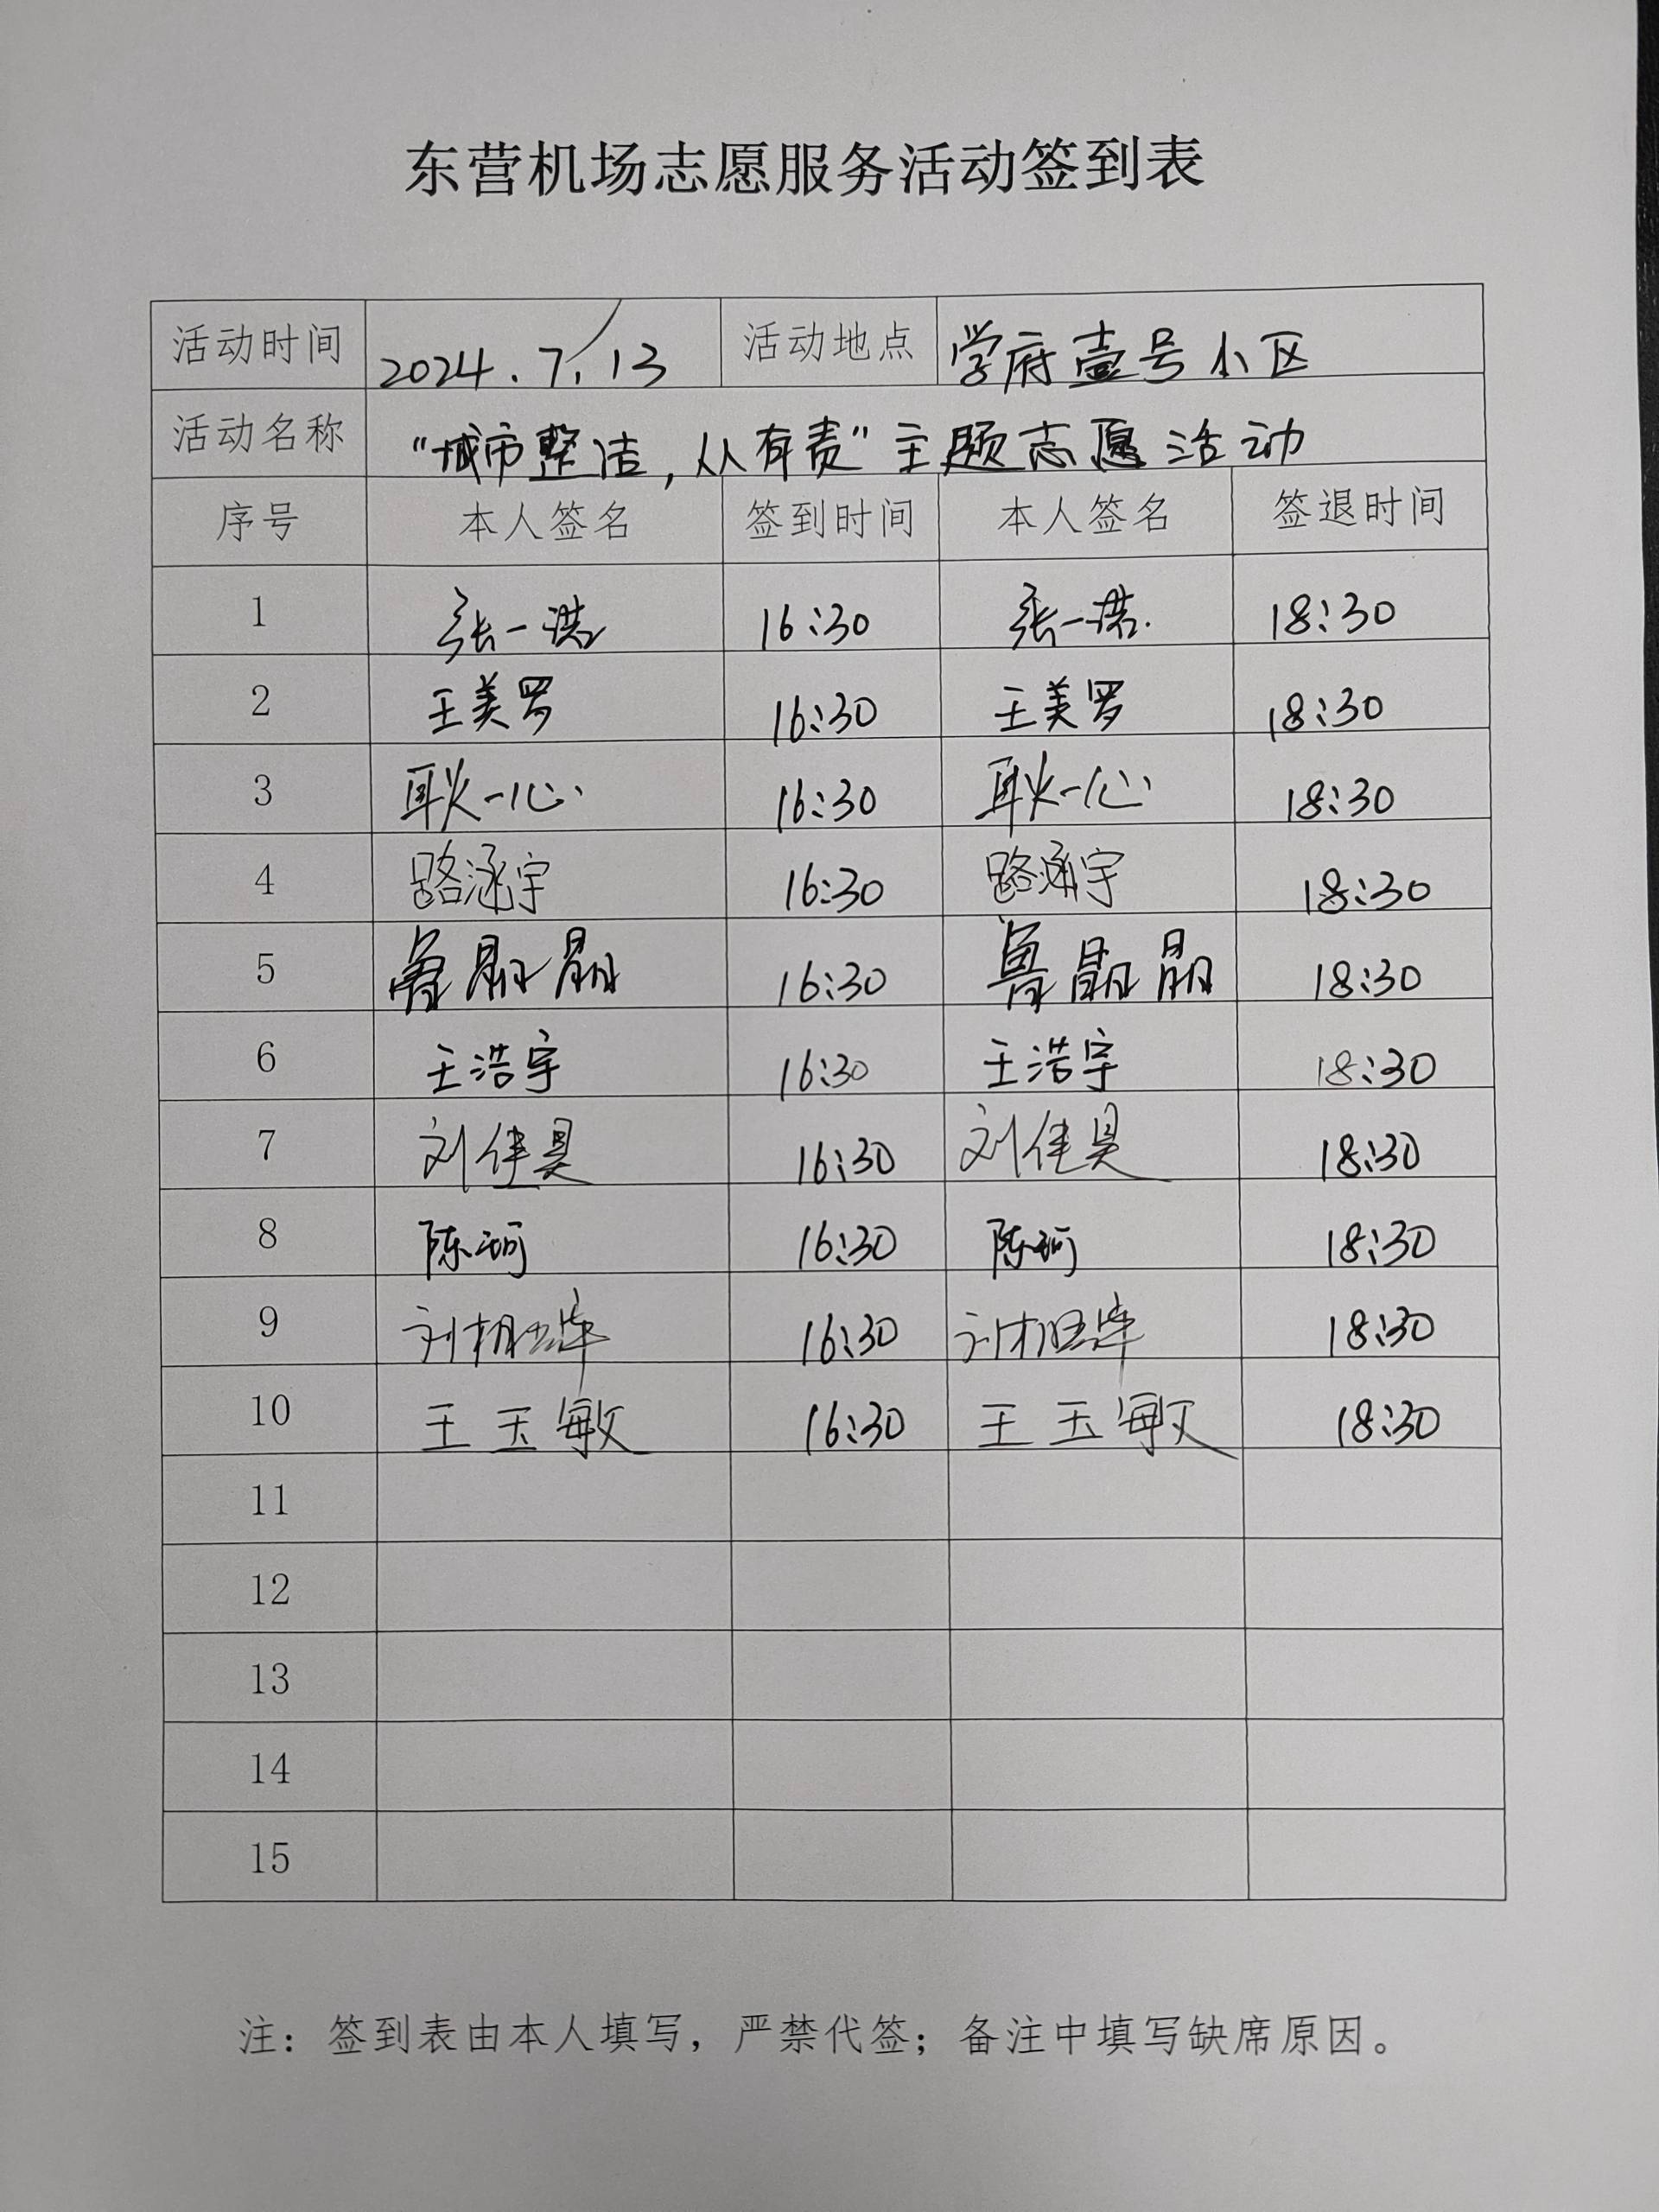 东营机场志愿服务活动签到表
活动时间 2024.7.13 活动地点 学府壹号小区
活动名称 “城市整洁，从有责”主题志愿活动
序号 本人签名 签到时间 本人签名 签退时间
1 张一诺 16:30 张一诺 18:30
2 王美罗 16:30 王美罗 18:30
3 耿一心 16:30 耿一心 18:30
4 路涵宇 16:30 路涵宇 18:30
5 鲁晶晶 16:30 鲁晶晶 18:30
6 王浩宇 16:30 王浩宇 18:30
7 刘佳昊 16:30 刘佳昊 18:30
8 陈珂 16:30 陈珂 18:30
9 刘 16:30 刘 18:30
10 王玉敏 16:30 王玉敏 18:30
11
12
13
14
15
注：签到表由本人填写，严禁代签；备注中填写缺席原因。